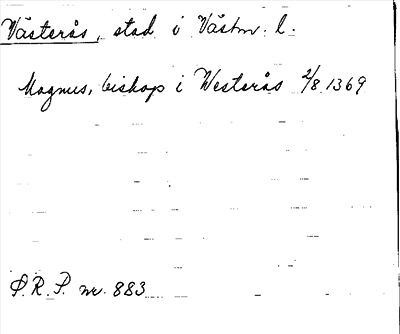 Västerås, stad i Västm. l.
Magnus, biskop i Westerås 2/8 1369
S.R.P. nr. 883